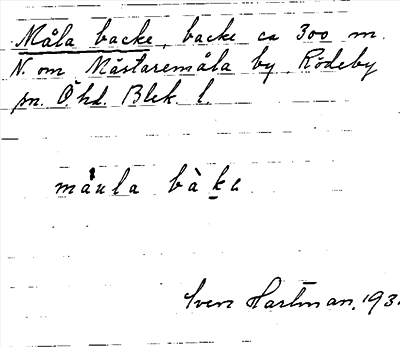 Måla backe, backe ca 300 m.
N. om Mästaremåla by, Rödeby
sn. Ö hd. Blek. l.
måula bàka
Sven Hartman, 193